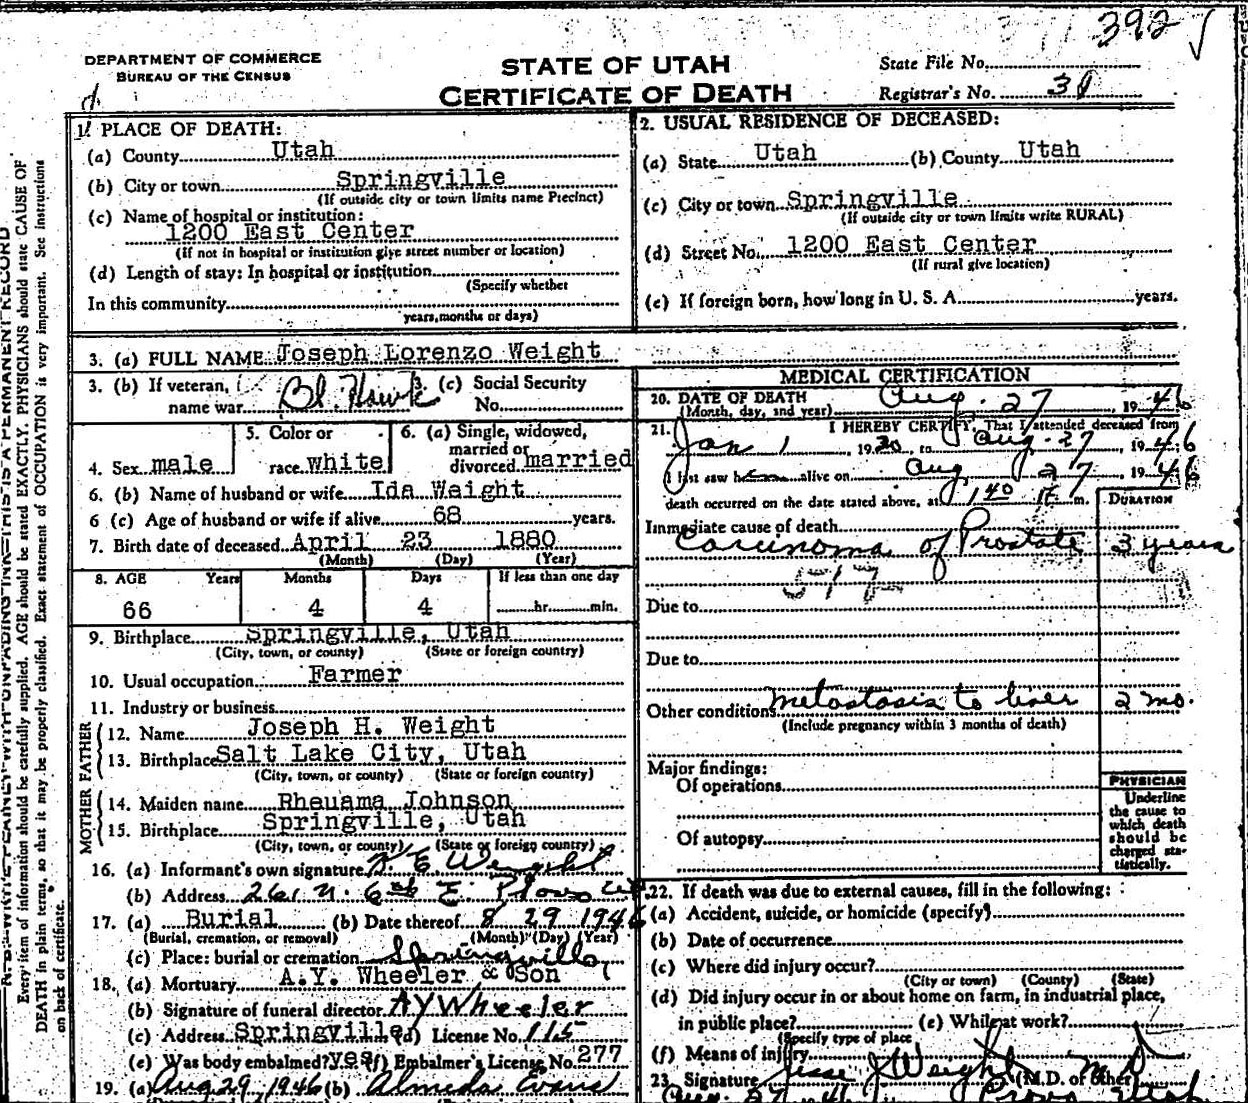 392 √
DEPARTMENT OF COMMERCE
BUREAU OF THE CENSUS
STATE OF UTAH
CERTIFICATE OF DEATH
State File No.
Registrar's No. 31
1. PLACE OF DEATH:
(a) County Utah
(b) City or town Springville
(If outside city or town limits name Precinct)
(c) Name of hospital or institution:
1200 East Center
(If not in hospital or institution give street number or location)
(d) Length of stay: In hospital or institution
(Specify whether
In this community
years, months or days)
2. USUAL RESIDENCE OF DECEASED:
(a) State Utah (b) County Utah
(c) City or town Springville
(If outside city or town limits write RURAL)
(d) Street No. 1200 East Center
(If rural give location)
(e) If foreign born, how long in U. S. A. years.
3. (a) FULL NAME Joseph Lorenzo Weight
3. (b) If veteran, name war Bl. Hawk 3. (c) Social Security No.
4. Sex male 5. Color or race white 6. (a) Single, widowed, married or divorced married
6. (b) Name of husband or wife Ida Weight
6 (c) Age of husband or wife if alive 68 years.
7. Birth date of deceased April 23 1880
(Month) (Day) (Year)
8. AGE Years Months Days If less than one day
66 4 4 hr. min.
9. Birthplace Springville, Utah
(City, town, or county) (State or foreign country)
10. Usual occupation Farmer
11. Industry or business
FATHER
12. Name Joseph H. Weight
13. Birthplace Salt Lake City, Utah
(City, town, or county) (State or foreign country)
MOTHER
14. Maiden name Rheuama Johnson
15. Birthplace Springville, Utah
(City, town, or county) (State or foreign country)
16. (a) Informant's own signature E. Weight
(b) Address 261 N. 6th E. Provo
17. (a) Burial (b) Date thereof 8 29 1946
(Burial, cremation, or removal) (Month) (Day) (Year)
(c) Place: burial or cremation Springville
18. (a) Mortuary A.Y. Wheeler & Son
(b) Signature of funeral director A Y Wheeler
(c) Address Springville (d) License No. 115
(e) Was body embalmed? yes (f) Embalmer's License No. 277
19. (a) Aug 29, 1946 (b) Almeda Evans
MEDICAL CERTIFICATION
20. DATE OF DEATH
(Month, day, and year) Aug. 27, 1946
21. I HEREBY CERTIFY, That I attended deceased from
Jan 1, 1930, to Aug. 27, 1946
I last saw him alive on Aug 27, 1946
death occurred on the date stated above, at 1 40 m.
DURATION
Immediate cause of death
Carcinoma of Prostate 3 years
Due to
Due to
Other conditions metastasis to liver 2 mo.
(Include pregnancy within 3 months of death)
Major findings:
Of operations
Of autopsy
PHYSICIAN
Underline
the cause to
which death
should be
charged sta-
tistically.
22. If death was due to external causes, fill in the following:
(a) Accident, suicide, or homicide (specify)
(b) Date of occurrence
(c) Where did injury occur?
(City or town) (County) (State)
(d) Did injury occur in or about home on farm, in industrial place,
in public place? (e) While at work?
(Specify type of place
(f) Means of injury
23. Signature Jesse J Weight M D (M.D. or other)
Aug. 27 1946 Provo Utah
Every item of information should be carefully supplied. AGE should be stated EXACTLY. PHYSICIANS should state CAUSE OF
DEATH in plain terms, so that it may be properly classified. Exact statement of OCCUPATION is very important. See instructions
on back of certificate.